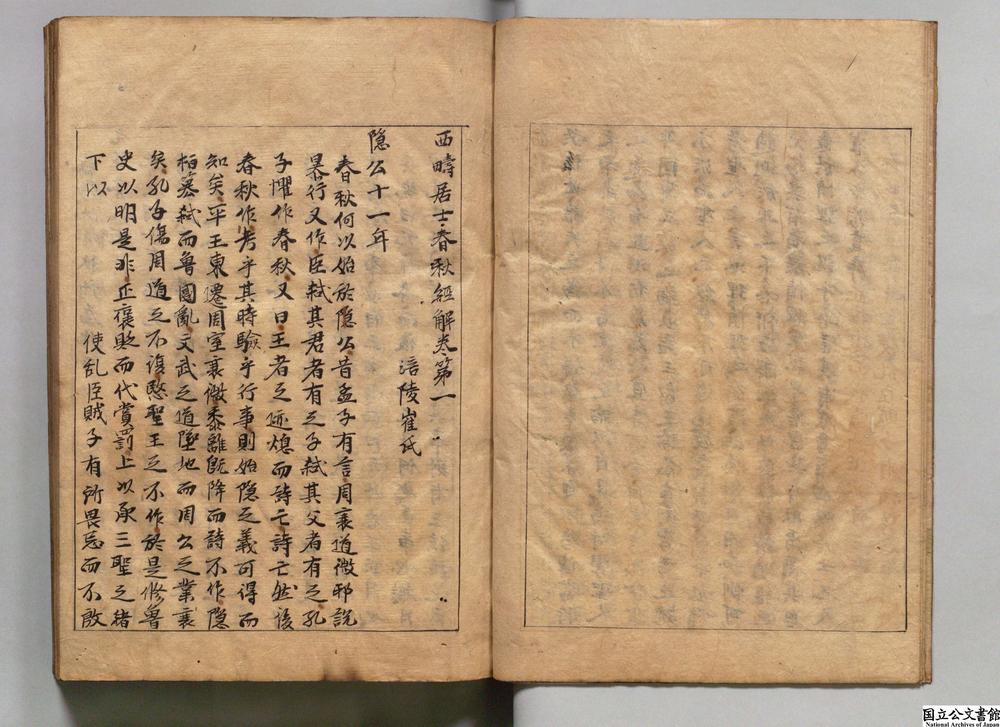 西疇居士春秋經解卷第一
涪陵崔氏
隐公十一年
春秋何以始於隐公昔孟子有言周衰道微邪説
暴行又作臣弑其君者有之子弑其父者有之孔
子懼作春秋又曰王者之迹熄而詩亡詩亡然後
春秋作考乎其時驗乎行事則始隐之義可得而
知矣平王東遷周室衰微黍離既降而詩不作隐
桓簒弑而魯國亂文武之道墜地而周公之業衰
矣孔子傷周道之不復愍聖王之不作於是修魯
史以明是非正襃貶而代賞罰上以承三聖之緒
下以 使乱臣賊子有所畏忌而不敢
国立公文書館
National Archives of Japan